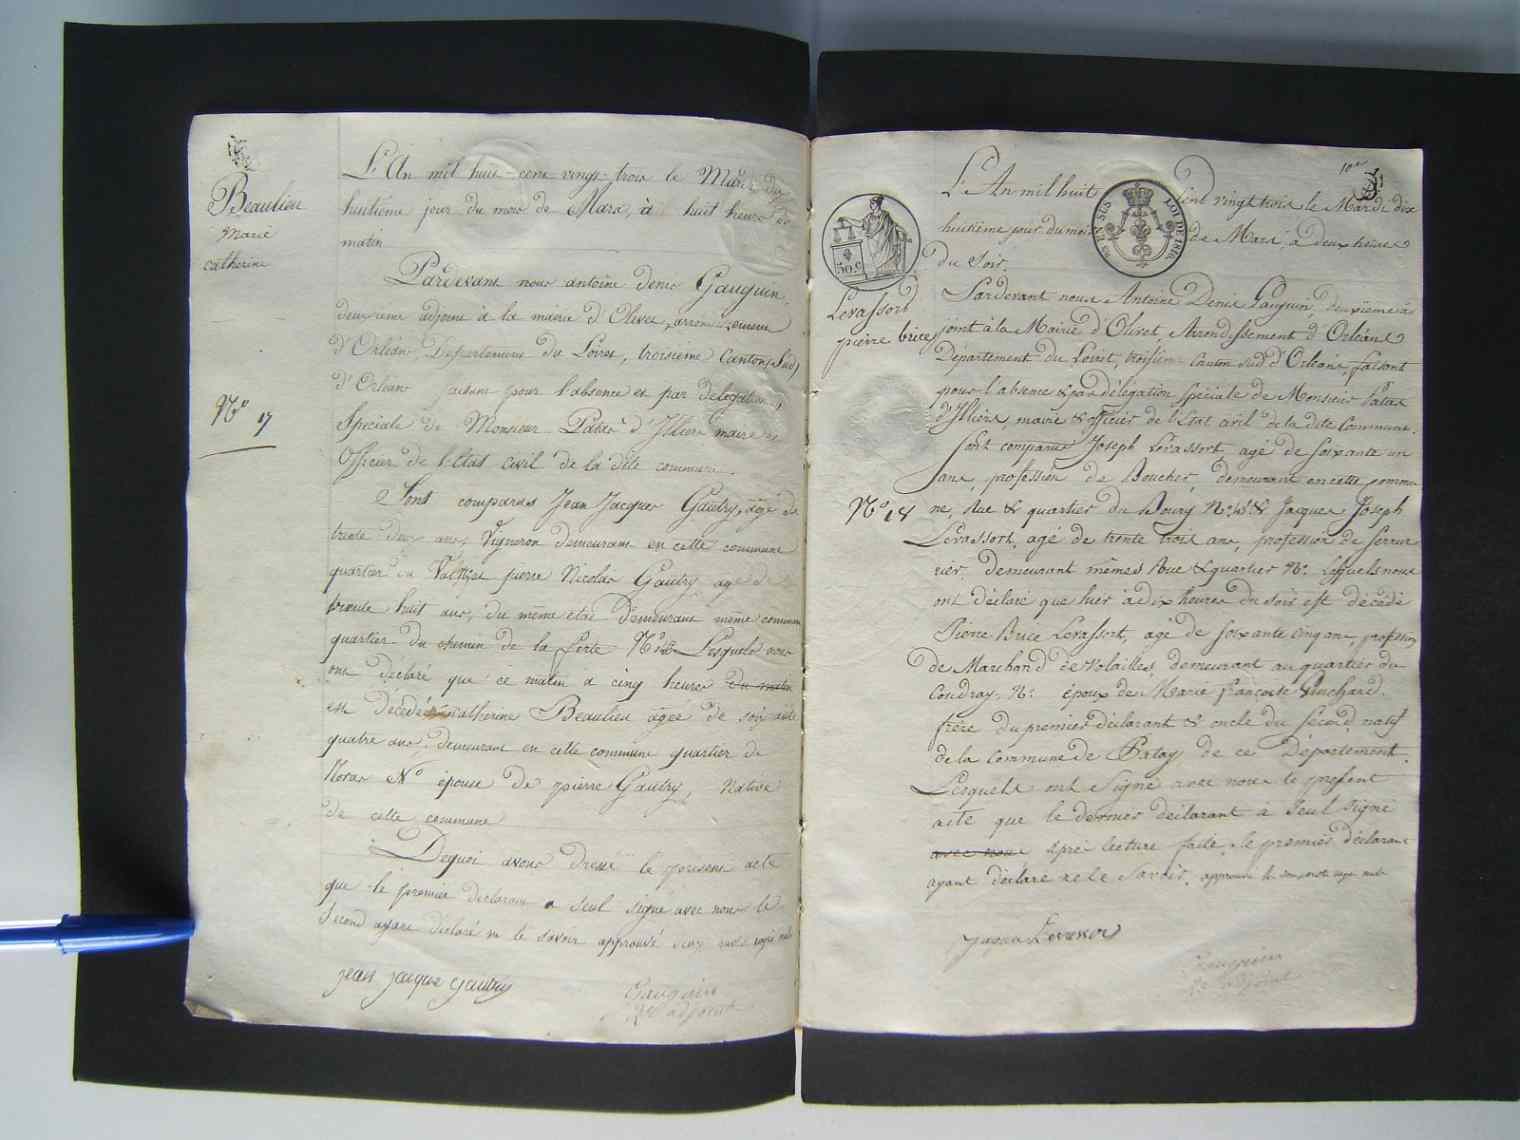 Beaulieu
Marie
catherine
N° 17
L'An mil huit-cent vingt-trois le Mardi dix
huitième jour du mois de Mars, à huit heures du
matin
Pardevant nous antoine denis Gauguin,
deuxième adjoint à la mairie d'Olivet, arrondissement
d'Orléans, Departement du Loiret, troisième Canton (Sud)
d'Orléans faisant pour l'absence et par délégation
Spéciale de Monsieur Patas d'Illiers maire et
Officier de l'état civil de la dite commune.
Sont comparus Jean Jacques Gautry, agé de
trente deux ans, Vigneron demeurant en cette commune
quartier du pierre Nicolas Gautry agé de
trente huit ans, du même état demeurant même commune
quartier du chemin de la ferté N° Lesquels nous
ont déclaré que ce matin a cinq heures du matin
est décédée catherine Beaulieu âgée de soixante
quatre ans demeurant en cette commune quartier de
Noras N° épouse de pierre Gautry, Native
de cette commune
Dequoi avons dressé le présent acte
que le premier déclarant a seul signé avec nous le
Second ayant déclaré ne le savoir approuvé mots rayé nuls
jean jacque gautry
Gauguin
2e adjoint
10e
EN SUS LOI DE 1816
50 c
Levassort
pierre brice
N° 18
L'An mil huit Cent vingt trois le Mardi dix
huitième jour du mois de Mars, à deux heures
du Soir.
Pardevant nous Antoine Denis Gauguin, deuxième ad
joint à la Mairie d'Olivet, Arrondissement d'Orléans
Département du Loiret, troisième Canton Sud d'Orléans, faisant
pour l'absence & par délégation Spéciale de Monsieur Patas
d'Illiers, maire & officier de l'Etat civil de la dite Commune.
Sont comparus Joseph Levassort, agé de soixante un
ans, profession de Boucher, demeurant en cette commu
ne, Rue & quartier du Bourg N° & Jacques Joseph
Levassort, agé de trente trois ans, profession de Serrur
ier, demeurant mêmes Rue & quartier N° Lesquels nous
ont déclaré que hier à dix heures du soir est décédé
Pierre Brice Levassort, agé de soixante cinq ans, profession
de Marchand de Volailles, demeurant au quartier du
Coudray, N° époux de Marie françoise Guichard.
frère du premier déclarant & oncle du second, natif
de la Commune de Patay de ce Département.
Lesquels ont signé avec nous le présent
acte que le dernier déclarant à seul signé
avec nous après lecture faite, le premier déclarant
ayant déclaré ne le savoir. approuvé mots rayé nuls
jaque Levassor
Gauguin
2e adjoint